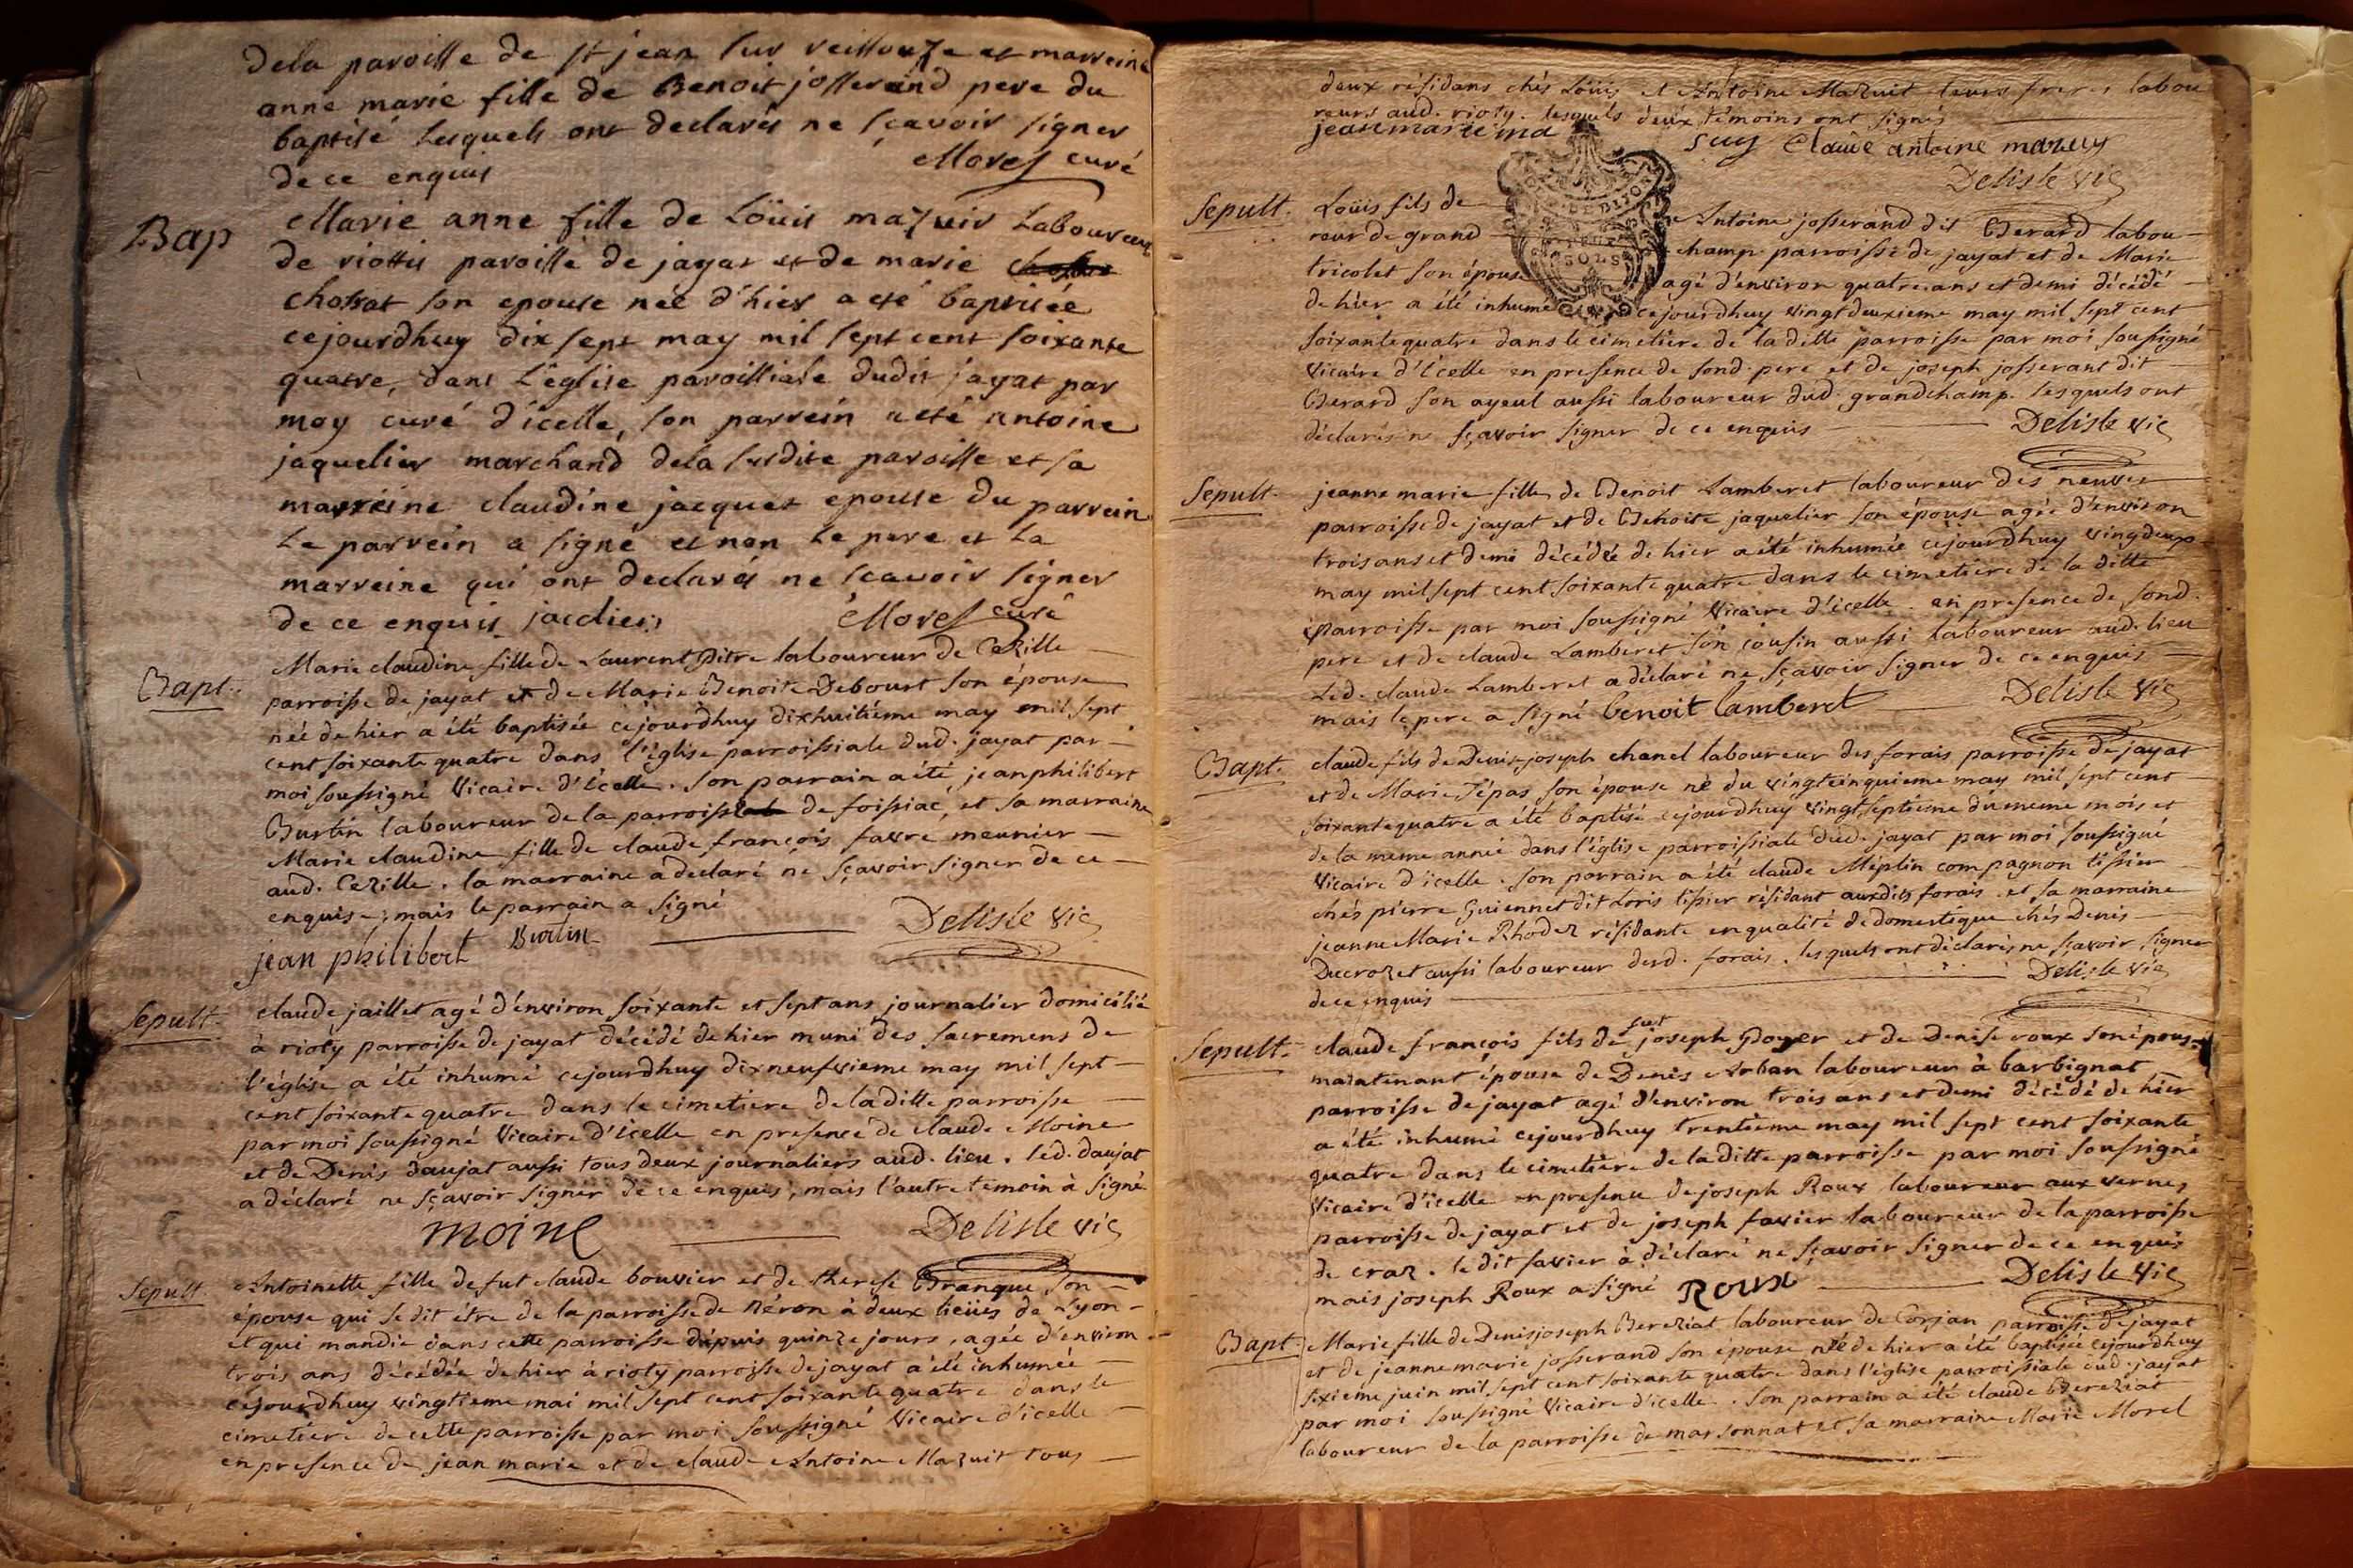 dela paroisse de st jean sur veissouze et marreine
anne marie fille de Benoit josserand pere du
baptisé Lesquels ont declarés ne sçavoir signer
de ce enquis
Morel curé
Bap
Marie anne fille de Loüis mazuir Laboureur
de riottis paroisse de jayat et de marie
chossat son epouse née d'hier a eté baptisée
cejourdhuy dix sept may mil sept cent soixante
quatre, dans L'église paroissiale dudit jayat par
moy curé d'icelle, son parrein a eté antoine
jaquelier marchand dela susdite paroisse et sa
marreine claudine jacquet epouse du parrein
Le parrein a signé et non Le pere et La
marreine qui ont declarés ne sçavoir signer
de ce enquis jaclier
Morel curé
Bapt.
Marie claudine fille de Laurent Pitre laboureur de Cezille
parroisse de jayat et de Marie Benoite Debourt son épouse
née de hier a été baptisée cejourdhuy dixhuitiéme may mil sept
cent soixante quatre dans l'église parroissiale dud. jayat par
moi soussigné Vicaire d'Icelle. son parrain a été jeanphilibert
Burtin laboureur de la parroisse de foissiac, et sa marraine
Marie claudine fille de claude françois favre meunier
aud. Cezille. la marraine a declaré ne sçavoir signer de ce
enquise, mais le parrain a signé
jean philibert Burtin
Delisle Vic
Sepult.
claude jaillet agé d'environ soixante et sept ans journalier domicilié
à rioty parroisse de jayat décédé de hier muni des sacremens de
l'église a été inhumé cejourdhuy dixneufvieme may mil sept
cent soixante quatre dans le cimetiere de la ditte parroisse
par moi soussigné Vicaire d'Icelle en presence de claude Moine
et de Denis daujat aussi tous deux journaliers aud. lieu. led. daujat
a déclaré ne sçavoir signer de ce enquis, mais l'autre temoin à signé
moine
Delisle Vic
Sepult.
Antoinette fille de fut claude bouvier et de therese Branque son
épouse qui se dit être de la parroisse de Néron à deux lieües de Lyon
et qui mandie dans cette parroisse depuis quinze jours, agée d'environ
trois ans décédée de hier à rioty parroisse de jayat a été inhumée
cejourdhuy vingtieme mai mil sept cent soixante quatre dans le
cimetière de cette parroisse par moi soussigné Vicaire d'icelle
en presence de jean marie et de claude Antoine Mazuit tous
deux résidans chés Loüis et Antoine Mazuit leurs freres labou
reurs aud. rioty. lesquels deux témoins ont signés
jean marie ma suy Claude antoine mazuy
Delisle Vic
Sepult.
Loüis fils de Antoine josserand dit Berard labou
reur de grand champ parroisse de jayat et de Marie
tricolet son épouse agé d'environ quatre ans et demi décédé
de hier a été inhumé cejourdhuy vingtdeuxieme may mil sept cent
soixante quatre dans le cimetière de la ditte parroisse par moi soussigné
Vicaire d'Icelle en presence de sond. pere et de joseph josserant dit
Berard son ayeul aussi laboureur dud. grandchamp. lesquels ont
déclarés ne sçavoir signer de ce enquis
Delisle Vic
Sepult.
jeanne marie fille de Benoit Lamberet laboureur des neuves
parroisse de jayat et de Benoite jaquelier son épouse agée d'environ
trois ans et demi décédée de hier a été inhumée cejourdhuy vingdeux
may mil sept cent soixante quatre dans le cimetiere de la ditte
parroisse par moi soussigné Vicaire d'icelle en presence de sond.
pere et de claude Lamberet son cousin aussi laboureur aud. lieu
Led. claude Lamberet a déclaré ne sçavoir signer de ce enquis
mais le pere a signé benoit lamberet
Delisle Vic
Bapt.
claude fils de Denis joseph chanel laboureur des forais parroisse de jayat
et de Marie Tépas son épouse né du vingtcinquieme may mil sept cent
soixante quatre a été baptisé cejourdhuy vingt septieme du meme mois et
de la meme année dans l'église parroissiale dud. jayat par moi soussigné
Vicaire d'icelle. son parrain a été claude Méplin compagnon tissier
chés pierre Guiennet dit Loris tissier résidant auxdits forais. et sa marraine
jeanne Marie Rhodez résidante en qualité de domestique chés Denis
Ducrozet aussi laboureur desd. forais. lesquels ont déclarés ne sçavoir signer
de ce enquis
Delisle Vic
Sepult.
claude françois fils de fut joseph Goyer et de Denise roux son épouse
maintenant épouse de Denis Arban laboureur à barbignat
parroisse de jayat agé d'environ trois ans et demi décédé de hier
a été inhumé cejourdhuy trentieme may mil sept cent soixante
quatre dans le cimetière de la ditte parroisse par moi soussigné
Vicaire d'icelle en presence de joseph Roux laboureur aux vernes
parroisse de jayat et de joseph favier laboureur de la parroisse
de craz. le dit favier à déclaré ne sçavoir signer de ce enquis
mais joseph Roux a signé Roux
Delisle Vic
Bapt.
Marie fille de Denis joseph Bereziat laboureur de Corjan parroisse de jayat
et de jeanne marie josserand son épouse née de hier a été baptisée cejourdhuy
sixieme juin mil sept cent soixante quatre dans l'église parroissiale dud. jayat
par moi soussigné Vicaire d'icelle. son parrain a été claude Bereziat
laboureur de la parroisse de marsonnat et sa marraine Marie Morel